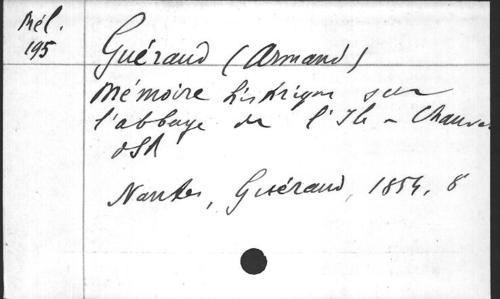 Mél.
195
Guéraud (Armand)
Mémoire historique sur
l'abbaye de l'Ile-Chauvet
OSB
Nantes, Guéraud, 1854, 8°